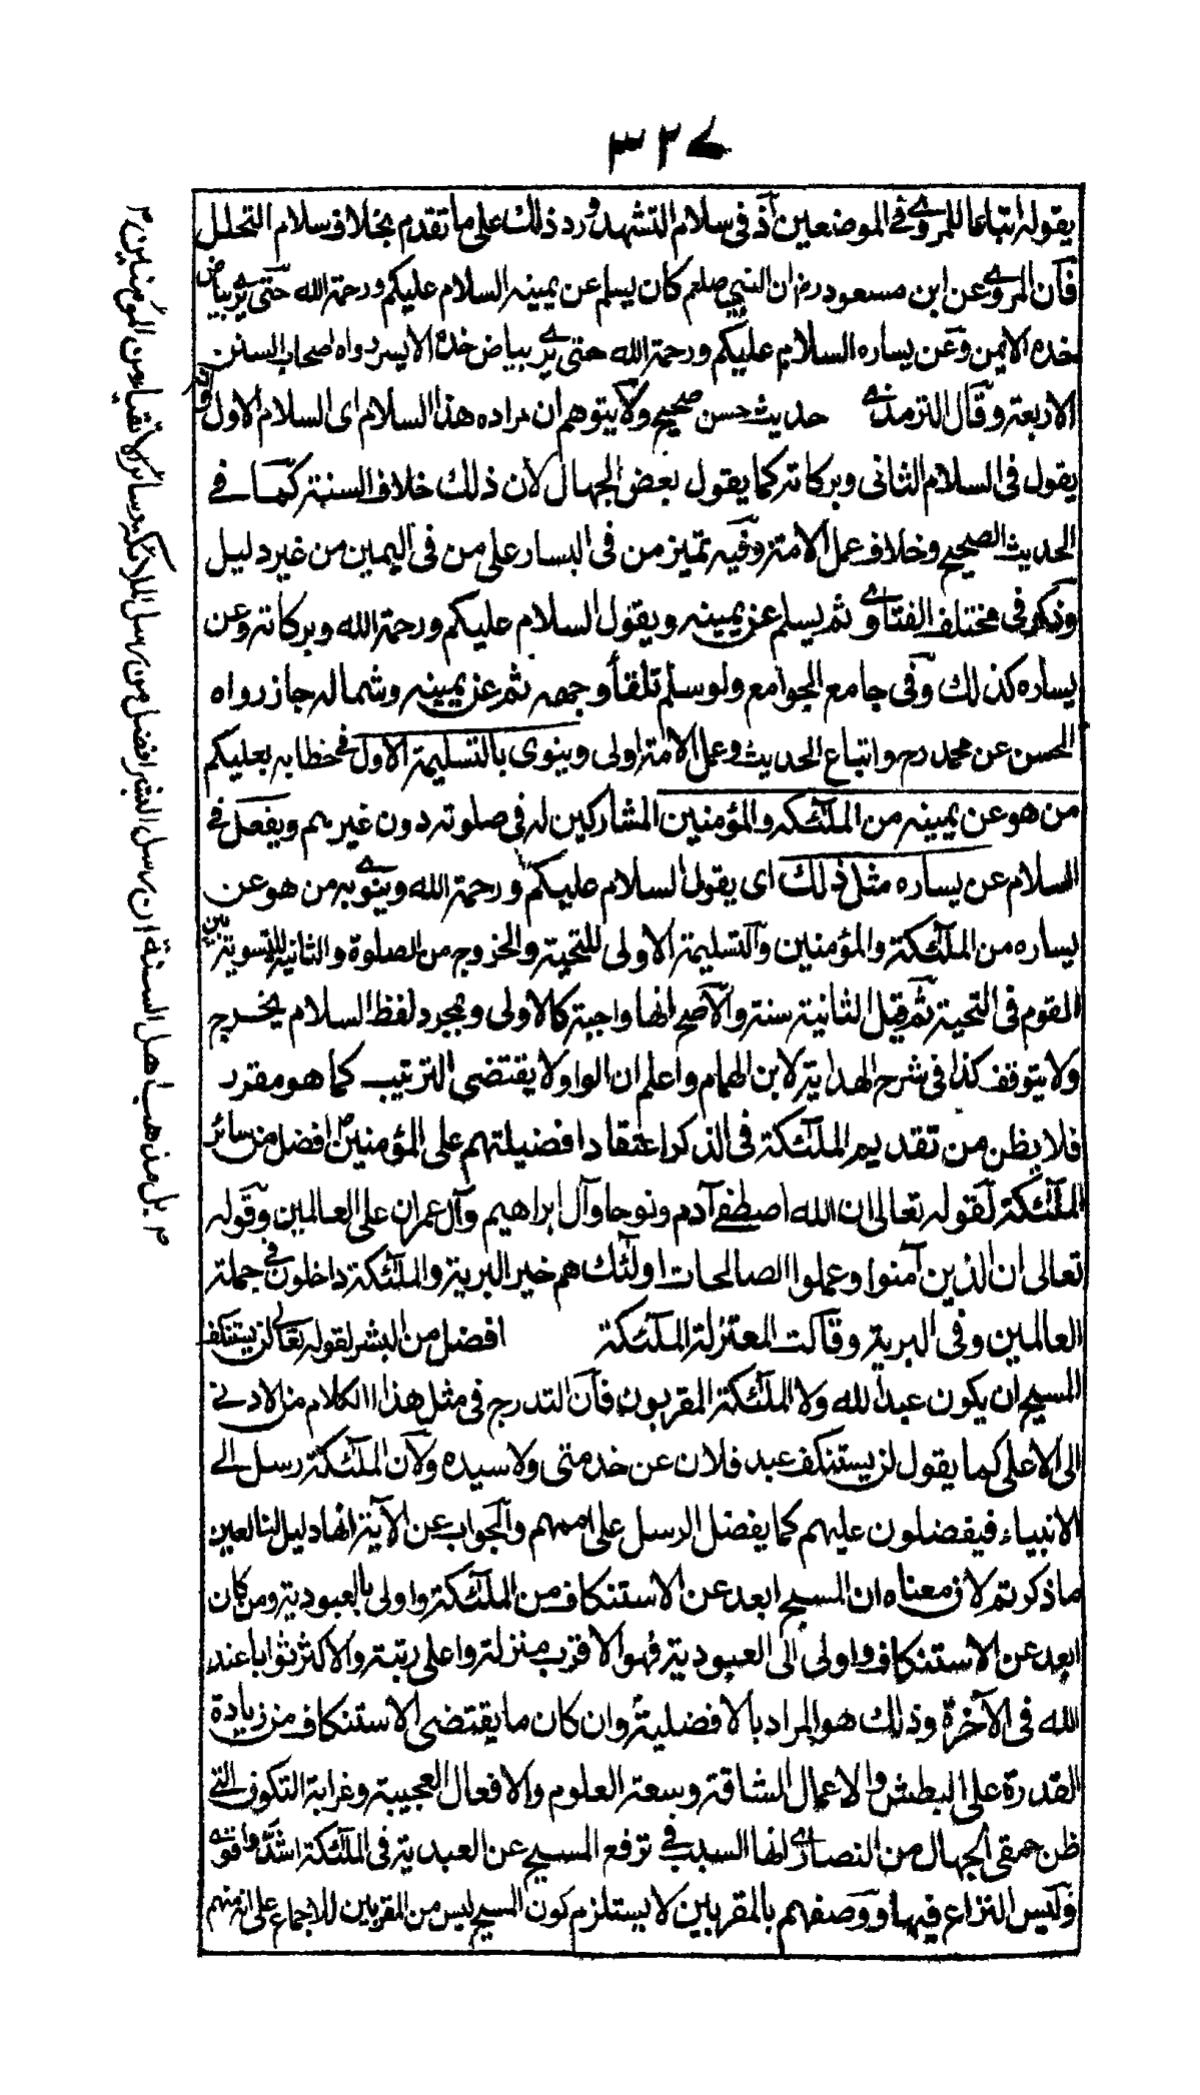 ٣٢٧
يقوله اتباعا للمروى فى الموضعين اذ فى سلام التشهد ورد ذلك على ما تقدم بخلاف سلام التحلل
فان المروى عن ابن مسعود رض ان النبى صلعم كان يسلم عن يمينه السلام عليكم ورحمة الله حتى يرى بياض
خده الايمن وعن يساره السلام عليكم ورحمة الله حتى يرى بياض خده الايسر رواه اصحاب السنن
الاربعة وقال الترمذى حديث حسن صحيح ولا يتوهم ان مراده هذا السلام اى السلام الاول وانه
يقول فى السلام الثانى وبركاته كما يقول بعض الجهال لان ذلك خلاف السنة كما فى
الحديث الصحيح وخلاف عمل الامة وفيه تميز من فى اليسار على من فى اليمين من غير دليل
وذكر فى مختلف الفتاوى ثم يسلم عن يمينه ويقول السلام عليكم ورحمة الله وبركاته وعن
يساره كذلك وفى جامع الجوامع ولو سلم تلقأ وجهه ثم عن يمينه وشماله جاز رواه
الحسن عن محمد رح واتباع الحديث وعمل الامة اولى وينوى بالتسليمة الاول فى خطابه بعليكم
من هو عن يمينه من الملئكه والمؤمنين المشاركين له فى صلوته دون غيرهم ويفعل فى
السلام عن يساره مثل ذلك اى يقول السلام عليكم ورحمة الله وينوى به من هو عن
يساره من الملئكة والمؤمنين والتسليمة الاولى للتحية والخروج من الصلوة والثانية للتسوية بين
القوم فى التحية ثم قيل الثانية سنة والاصح انها واجبة كالاولى وبمجرد لفظ السلام يخرج
ولا يتوقف كذا فى شرح الهداية لابن الهمام واعلم ان الواو لا يقتضى الترتيب كما هو مقرر
فلا يظن من تقديم الملئكة فى الذكر اعتقاد افضيلتهم على المؤمنين ٢ افضل من سائر
الملئكة لقوله تعالى ان الله اصطفى آدم ونوحا وآل ابراهيم وآل عمران على العالمين وقوله
تعالى ان الذين آمنوا وعملوا الصالحات اولئك هم خير البرية والملئكة داخلون فى جملة
العالمين وفى البرية وقالت المعتزلة الملئكة افضل من البشر لقوله تعالى لن يستنكف
المسيح ان يكون عبدا لله ولا الملئكة المقربون فان التدرج فى مثل هذا الكلام من الادنى
الى الاعلى كما يقول لن يستنكف عبد فلان عن خدمتى ولا سيده ولان الملئكة رسل الى
الانبياء فيفضلون عليهم كما يفضل الرسل على اممهم والجواب عن الآية انها دليل لنا لعين
ما ذكرتم لان معناه ان المسيح ابعد عن الاستنكاف من الملئكة واولى بالعبودية ومن كان
ابعد عن الاستنكاف واولى الى العبودية فهو الاقرب منزلة واعلى رتبة والاكثر ثوابا عند
الله فى الآخرة وذلك هو المراد بالافضلية وان كان ما يقتضى الاستنكاف من زيادة
القدرة على البطش والاعمال الشاقة وسعة العلوم والافعال العجيبة وغرابة التكون التى
ظن حمقى الجهال من النصارى انها السبب فى ترفع المسيح عن العبدية فى الملئكة اشد واقوى
وليس النزاع فيها ووصفهم بالمقربين لا يستلزم كون المسيح ليس من المقربين للاجماع على انه منهم
٢ بل مذهب اهل السنة ان رسل البشر افضل من رسل الملائكه وسائر الاتقياء من المؤمنين ٢